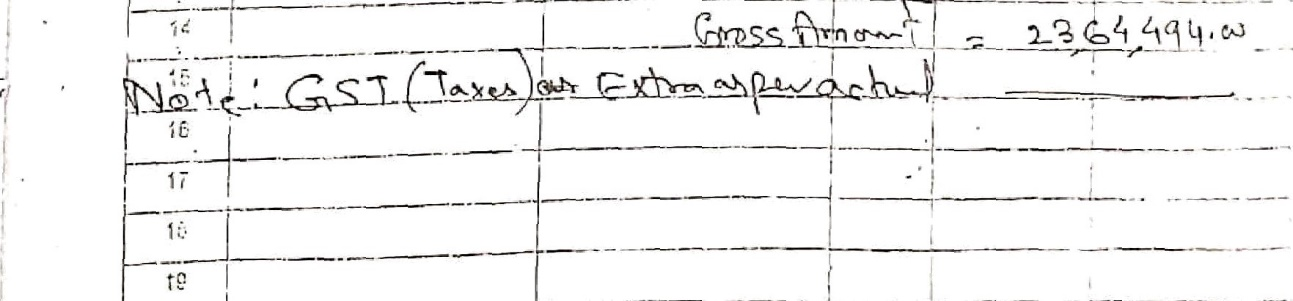 14 Gross Amount = 23,64,494.00
15
Note: GST (Taxes) are Extra as per actual
16
17
18
19